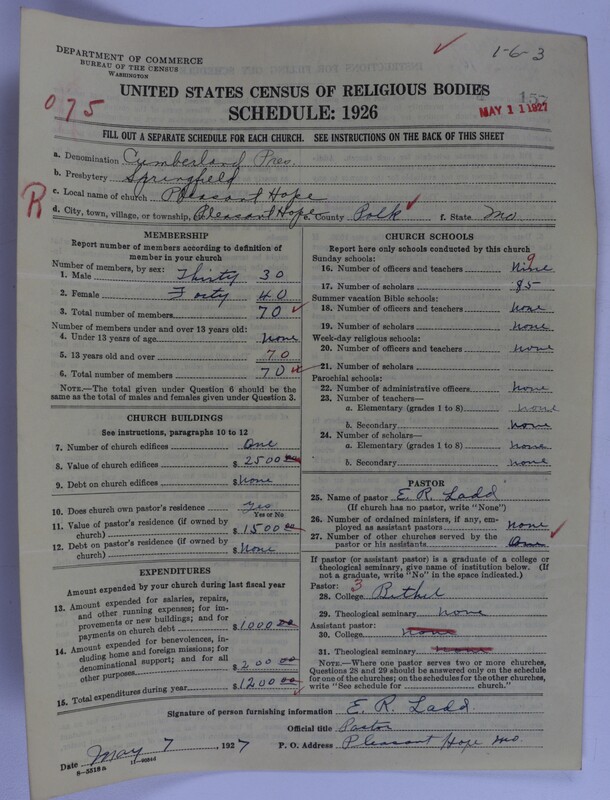 DEPARTMENT OF COMMERCE
BUREAU OF THE CENSUS
WASHINGTON
1-6-3
UNITED STATES CENSUS OF RELIGIOUS BODIES
157
075
SCHEDULE: 1926
MAY 11 1927
FILL OUT A SEPARATE SCHEDULE FOR EACH CHURCH. SEE INSTRUCTIONS ON THE BACK OF THIS SHEET
a. Denomination Cumberland Pres.
b. Presbytery Springfield
R
c. Local name of church Pleasant Hope
d. City, town, village, or township, Pleasant Hope e. County Polk f. State Mo
MEMBERSHIP
Report number of members according to definition of
member in your church
Number of members, by sex:
1. Male Thirty 30
2. Female Forty 40
3. Total number of members 70
Number of members under and over 13 years old:
4. Under 13 years of age None
5. 13 years old and over 70
6. Total number of members 70
NOTE.—The total given under Question 6 should be the
same as the total of males and females given under Question 3.
CHURCH BUILDINGS
See instructions, paragraphs 10 to 12
7. Number of church edifices One
8. Value of church edifices $ 2500 00
9. Debt on church edifices $ None
10. Does church own pastor's residence Yes
Yes or No
11. Value of pastor's residence (if owned by
church) $ 1500 00
12. Debt on pastor's residence (if owned by
church) $ None
EXPENDITURES
Amount expended by your church during last fiscal year
13. Amount expended for salaries, repairs,
and other running expenses; for im-
provements or new buildings; and for
payments on church debt $ 1000 00
14. Amount expended for benevolences, in-
cluding home and foreign missions; for
denominational support; and for all
other purposes $ 200 00
15. Total expenditures during year $ 1200 00
CHURCH SCHOOLS
Report here only schools conducted by this church
Sunday schools:
16. Number of officers and teachers Nine 9
17. Number of scholars 85
Summer vacation Bible schools:
18. Number of officers and teachers None
19. Number of scholars None
Week-day religious schools:
20. Number of officers and teachers None
21. Number of scholars
Parochial schools:
22. Number of administrative officers None
23. Number of teachers—
a. Elementary (grades 1 to 8) none
b. Secondary None
24. Number of scholars—
a. Elementary (grades 1 to 8) None
b. Secondary None
PASTOR
25. Name of pastor E. R. Ladd
(If church has no pastor, write "None")
26. Number of ordained ministers, if any, em-
ployed as assistant pastors None
27. Number of other churches served by the
pastor or his assistants One
If pastor (or assistant pastor) is a graduate of a college or
theological seminary, give name of institution below. (If
not a graduate, write "No" in the space indicated.)
Pastor: 3
28. College Bethel
29. Theological seminary none
Assistant pastor:
30. College None
31. Theological seminary None
NOTE.—Where one pastor serves two or more churches,
Questions 28 and 29 should be answered only on the schedule
for one of the churches; on the schedules for the other churches,
write "See schedule for church."
Signature of person furnishing information E. R. Ladd
Official title Pastor
Date May 7, 1927 P. O. Address Pleasant Hope Mo
8-5518a